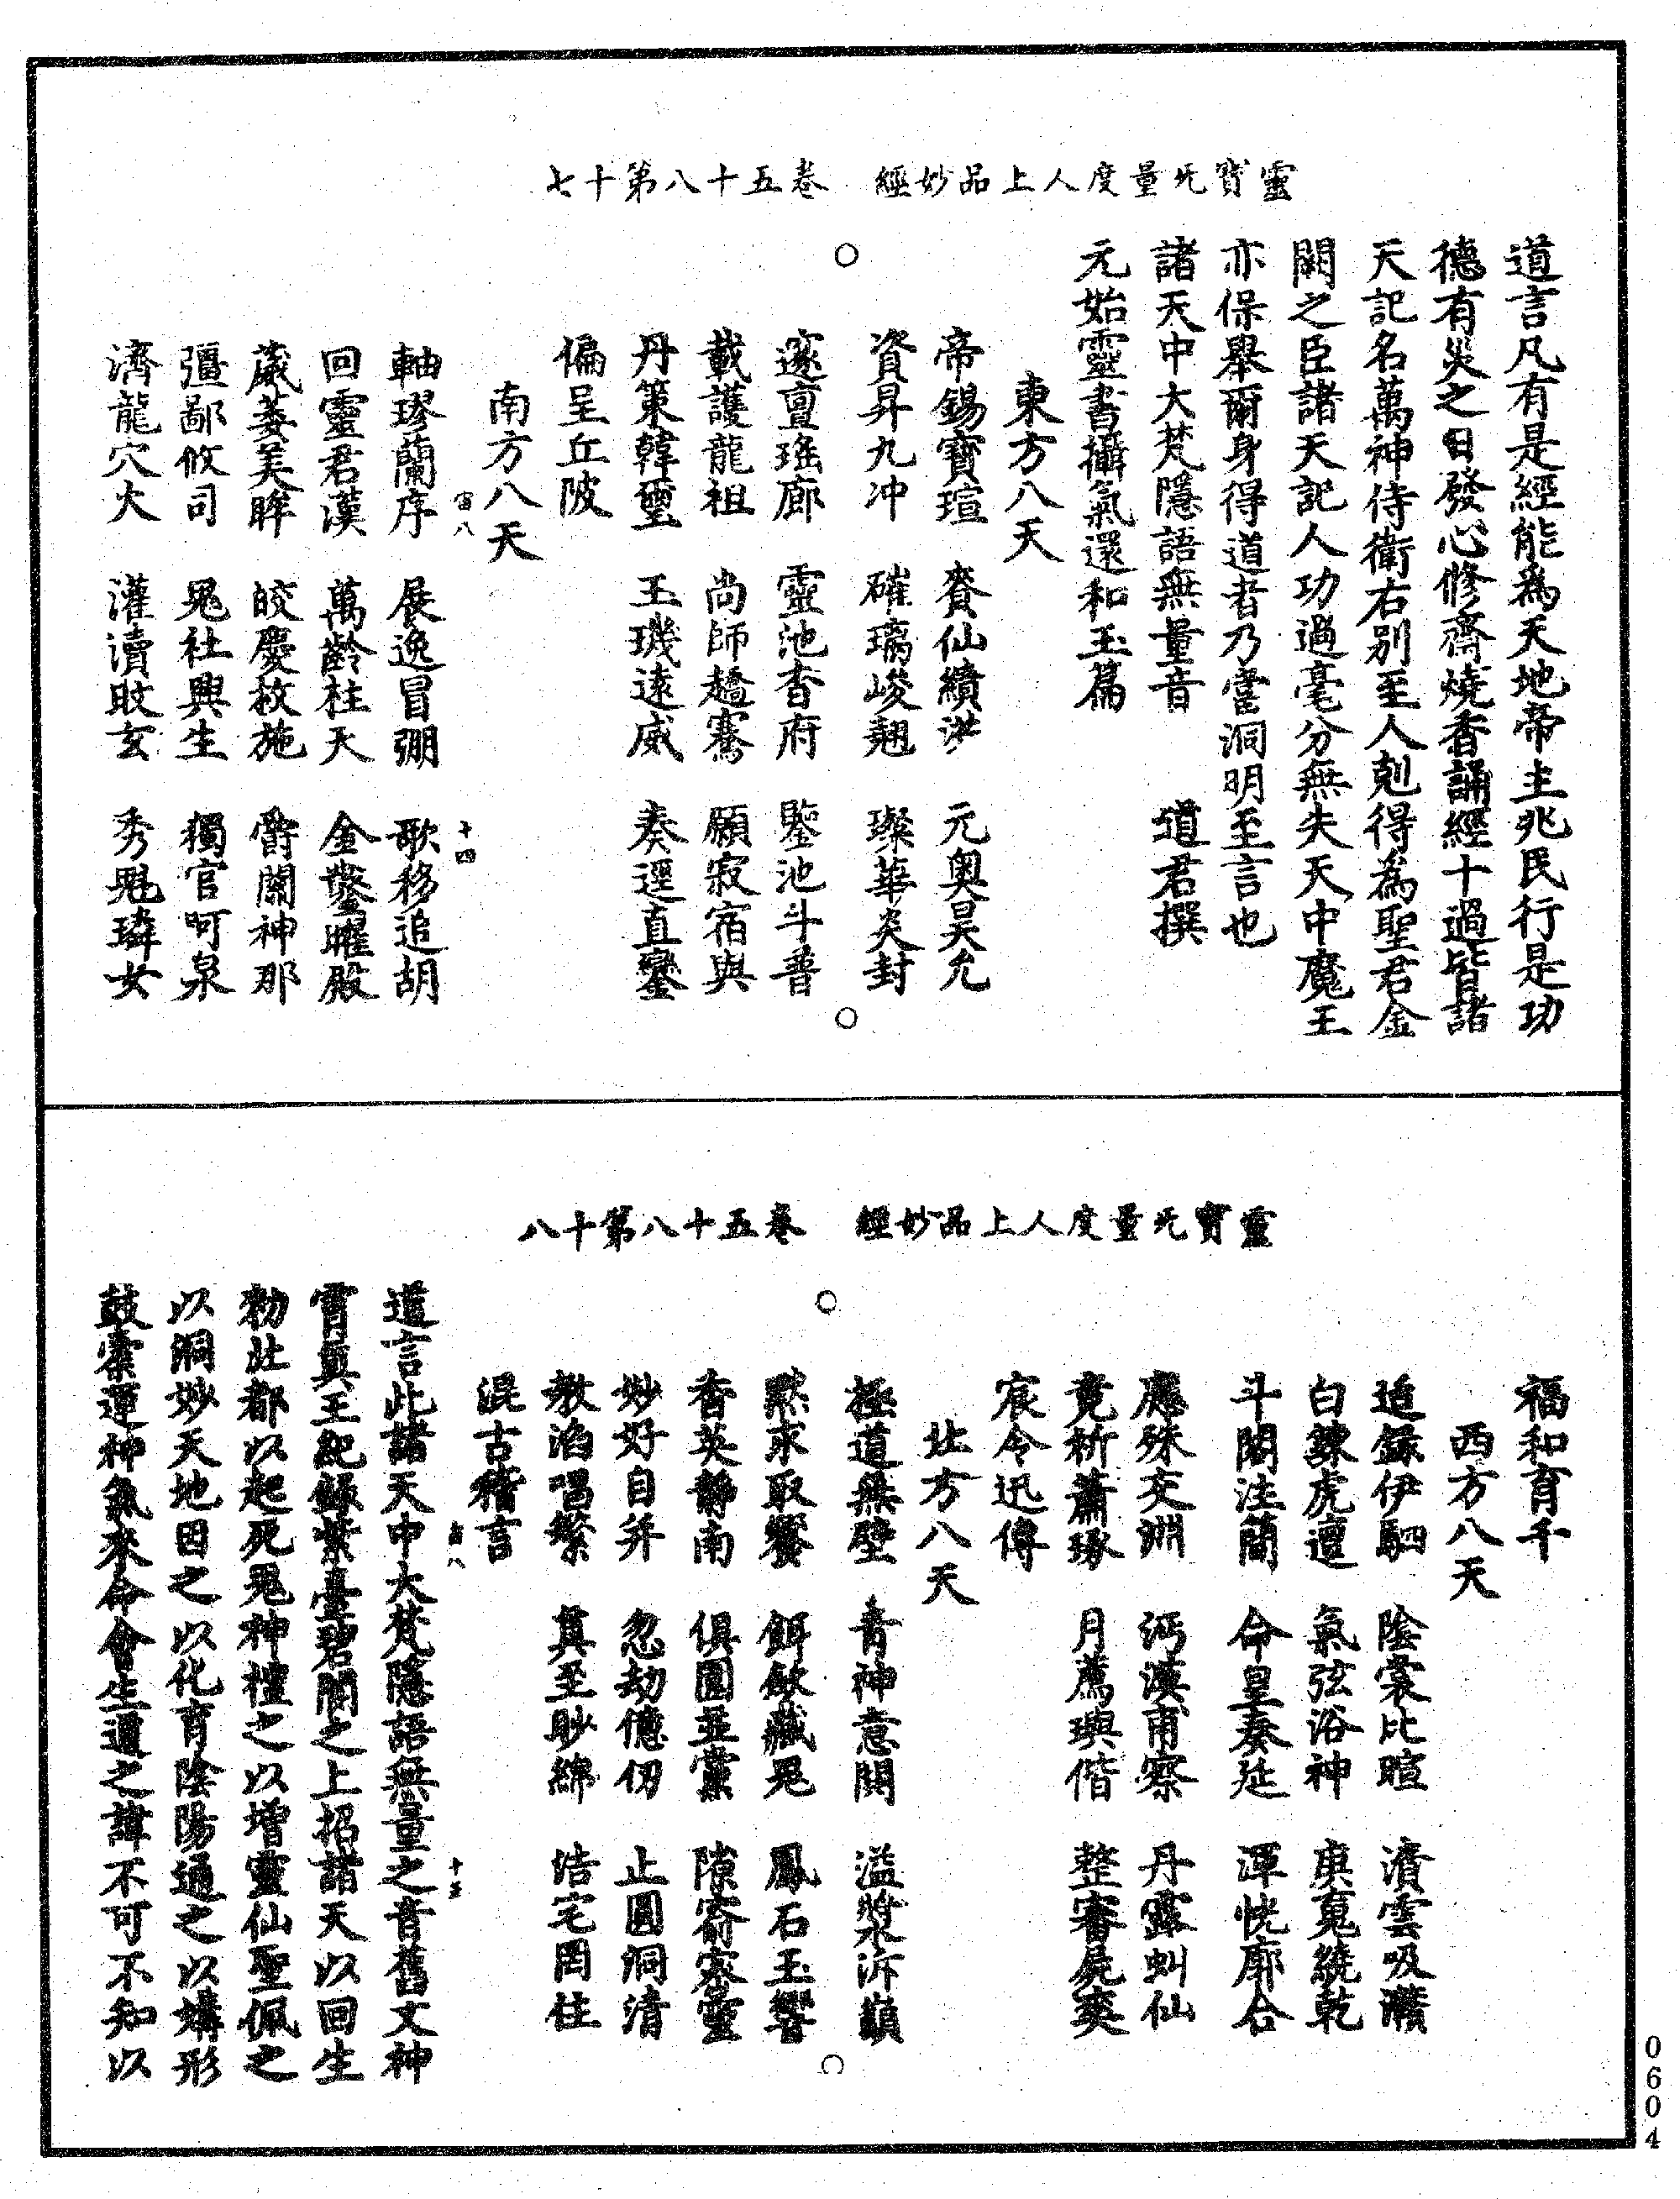 靈寶无量度人上品妙經　卷五十八第十七
道言凡有是經能為天地帝主兆民行是功
德有災之日發心修齋燒香誦經十過皆諸
天記名萬神侍衛右別至人剋得為聖君金
闕之臣諸天記人功過毫分無失天中魔王
亦保舉爾身得道者乃當洞明至言也
諸天中大梵隱語無量音　道君撰
元始靈書攝氣還和玉篇
東方八天
帝錫寶瑄　賚仙績洪　元奧昊允
資昇九冲　確璃峻翹　璨華炎封
邃亶瑤廊　靈池杳府　鑒池斗普
載護龍祖　尚師趫騫　願寂宿與
丹策韓璽　玉璣遠威　奏逕直鑾
偏呈丘陂
南方八天
宙八　十四
軸璆蘭序　展逸冒弸　歌移追胡
回靈君漢　萬齡柱天　金鑾曜殿
葳蔆美眸　皎慶枚施　爵闌神那
彊鄙攸司　鬼社興生　獨官呵泉
濟龍穴大　灌瀆敗玄　秀鬽璘女
靈寶无量度人上品妙經　卷五十八第十八
福和育千
西方八天
追錄伊駟　陰裳比暄　濆雲吸瀕
白諫虎邅　氣弦浴神　庚寬繞乾
斗閣注蘭　命皇奏延　渾恍廓合
應殊交淵　沔漢甫察　丹露虯仙
竟析蕭琢　月薦璵偕　整審晁爽
宸令迅傳
北方八天
極道無壁　青神意閞　溢漿泝巔
默求取饗　餌斂藏鬼　鳳石玉響
香英靜南　俱圓並黨　隙窬塞靈
妙好自并　忽劫億仞　止圓洞清
教滔唱繁　真至眇綿　浩宅罔住
混古稽言
宙八　十五
道言此諸天中大梵隱語無量之音舊文神
霄真王紀錄紫臺碧閣之上招諸天以回生
勑北都以起死鬼神禮之以增靈仙聖佩之
以洞妙天地因之以化育陰陽通之以媾形
鼓橐運神氣來命會生道之諱不可不知以
0604